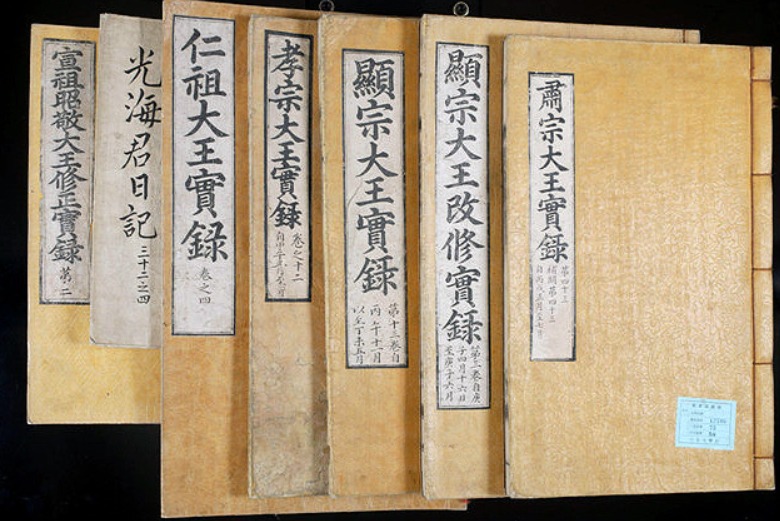 宣祖昭敬大王修正實錄
第二
光海君日記
三十二之四
仁祖大王實錄
卷之四
孝宗大王實錄
卷之十二
顯宗大王實錄
第十三卷自
丙午十一月
以至丁未五月
顯宗大王改修實錄
第二卷自庚
子四月十六日
至庚子六月
肅宗大王實錄
第四十三
補闕第四十三
自丙戌正月至七月